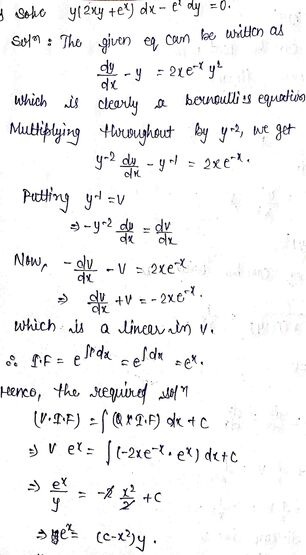 Solve y(2xy + e^x) dx - e^x dy = 0.
Sol^n : The given eq can be written as
dy/dx - y = 2xe^-x y^2
which is clearly a bernoullies equation
Multiplying throughout by y^-2, we get
y^-2 dy/dx - y^-1 = 2xe^-x.
Putting y^-1 = V
⇒ -y^-2 dy/dx = dV/dx
Now, -dV/dx - V = 2xe^-x
⇒ dV/dx + V = -2xe^-x.
which is a linear in V.
∴ I.F = e^∫Pdx = e^∫dx = e^x.
Hence, the required sol^n
(V.I.F) = ∫(Q*I.F) dx + C
⇒ V e^x = ∫(-2xe^-x . e^x) dx + C
⇒ e^x/y = -2 x^2/2 + C
⇒ e^x = (C-x^2)y.